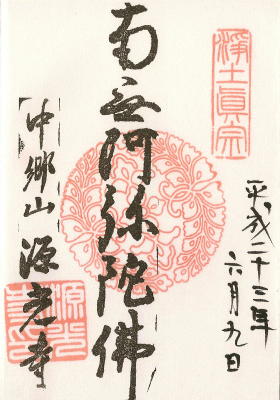 浄土真宗
平成二十三年
六月九日
南无阿弥陀佛
中郷山
源光寺
源光寺